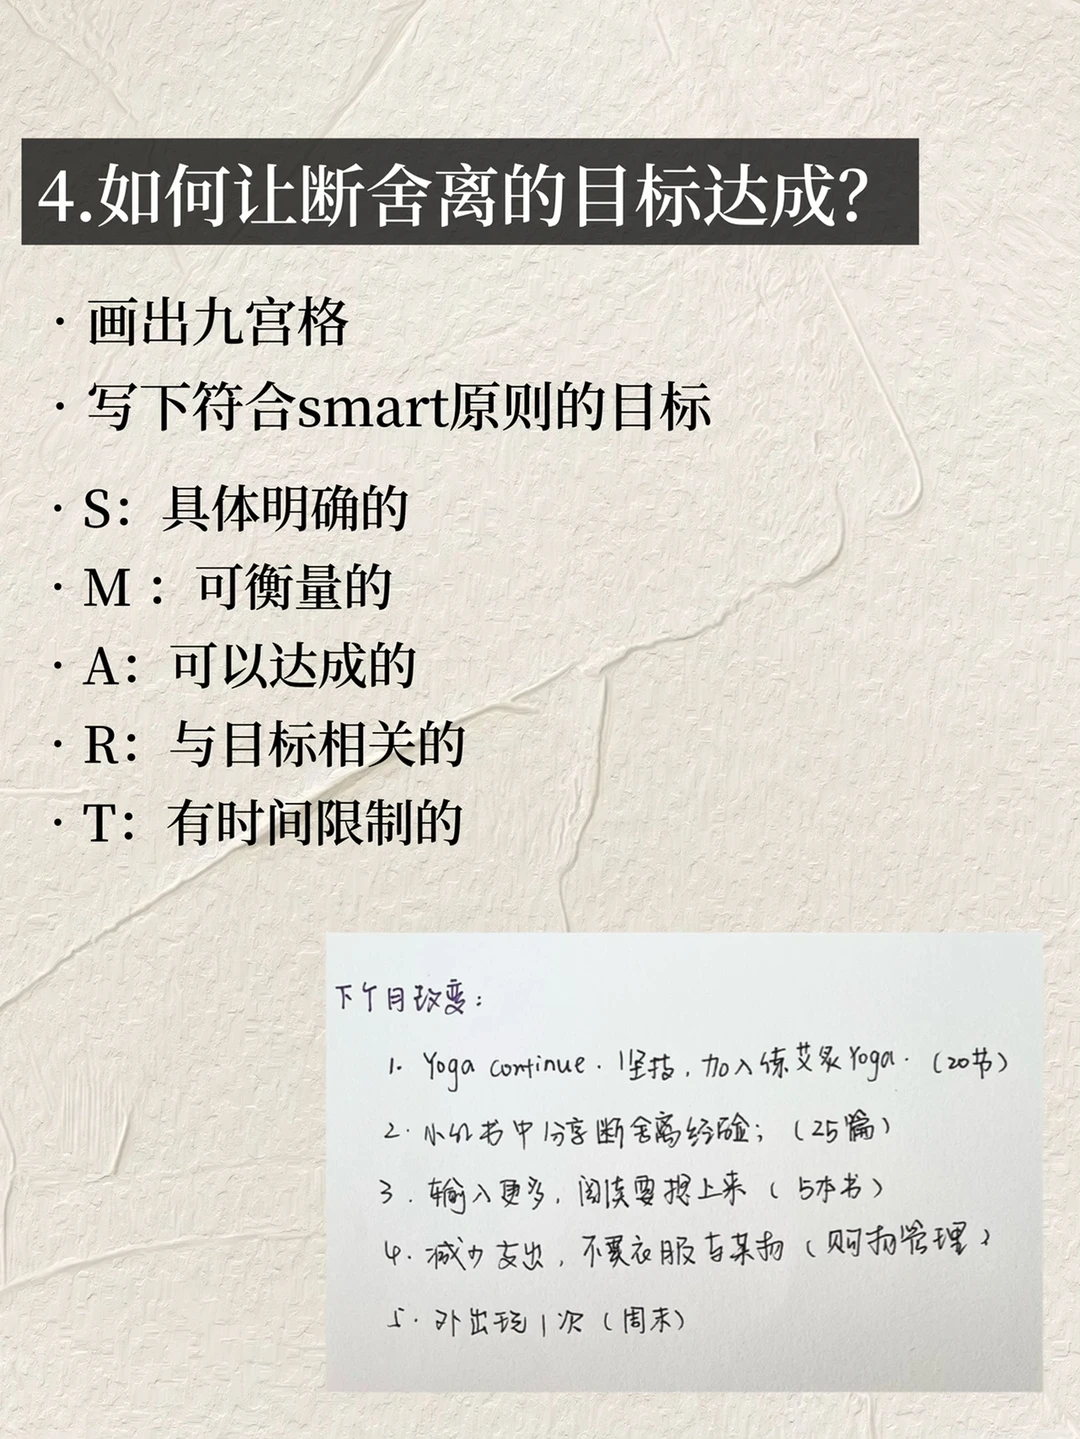 4.如何让断舍离的目标达成？
· 画出九宫格
· 写下符合smart原则的目标
· S：具体明确的
· M：可衡量的
· A：可以达成的
· R：与目标相关的
· T：有时间限制的
下个月改变：
1. Yoga continue. 坚持, 加入练艾灸Yoga. (20节)
2. 小红书中分享断舍离经验；(25篇)
3. 输入更多, 阅读要提上来 (5本书)
4. 减少支出, 不买衣服与某物 (购物管理)
5. 外出玩1次 (周末)